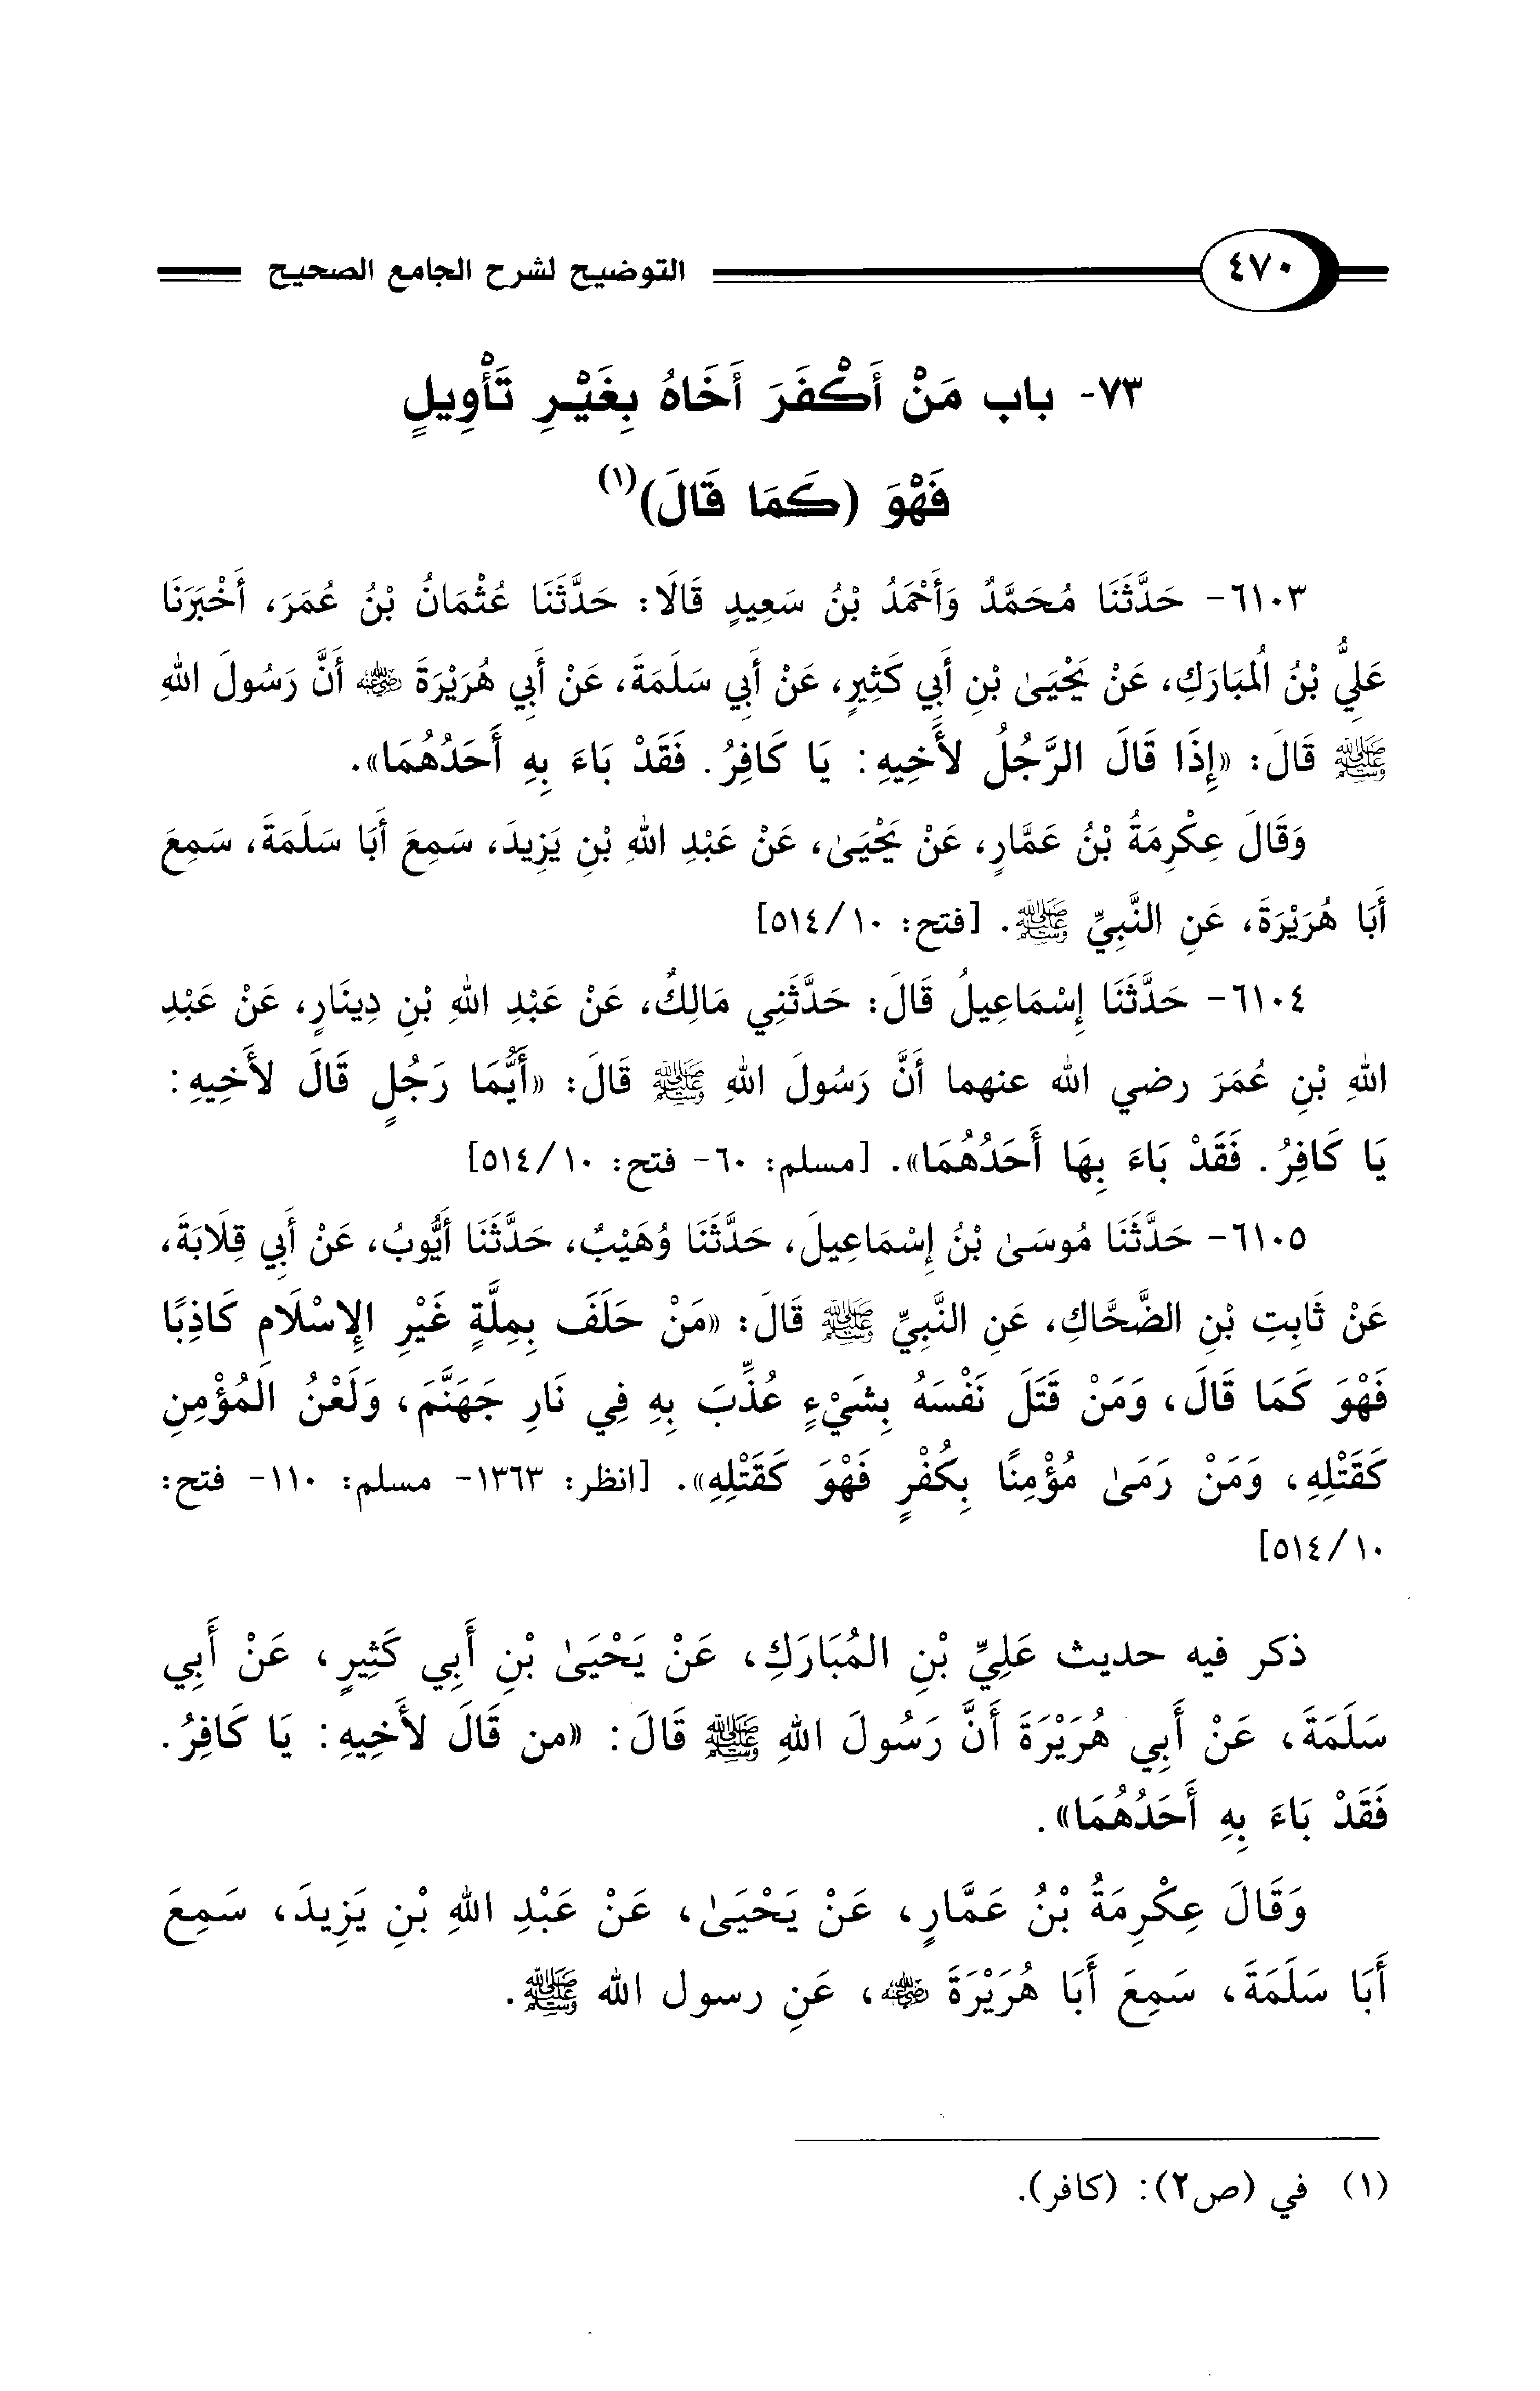 ٤٧٠ التوضيح لشرح الجامع الصحيح
٧٣- باب مَنْ أَكْفَرَ أَخَاهُ بِغَيْرِ تَأْوِيلٍ
فَهْوَ (كَمَا قَالَ)(١)
٦١٠٣- حَدَّثَنَا مُحَمَّدٌ وَأَحْمَدُ بْنُ سَعِيدٍ قَالَا: حَدَّثَنَا عُثْمَانُ بْنُ عُمَرَ، أَخْبَرَنَا
عَلِيُّ بْنُ الُمبَارَكِ، عَنْ يَحْيَىٰ بْنِ أَبِي كَثِيرٍ، عَنْ أَبِي سَلَمَةَ، عَنْ أَبِي هُرَيْرَةَ رضي الله عنه أَنَّ رَسُولَ اللهِ
ﷺ قَالَ: «إِذَا قَالَ الرَّجُلُ لأَخِيهِ: يَا كَافِرُ. فَقَدْ بَاءَ بِهِ أَحَدُهُمَا».
وَقَالَ عِكْرِمَةُ بْنُ عَمَّارٍ، عَنْ يَحْيَىٰ، عَنْ عَبْدِ اللهِ بْنِ يَزِيدَ، سَمِعَ أَبَا سَلَمَةَ، سَمِعَ
أَبَا هُرَيْرَةَ، عَنِ النَّبِيِّ ﷺ. [فتح: ١٠/ ٥١٤]
٦١٠٤- حَدَّثَنَا إِسْمَاعِيلُ قَالَ: حَدَّثَنِي مَالِكٌ، عَنْ عَبْدِ اللهِ بْنِ دِينَارٍ، عَنْ عَبْدِ
اللهِ بْنِ عُمَرَ رضي الله عنهما أَنَّ رَسُولَ اللهِ ﷺ قَالَ: «أَيُّمَا رَجُلٍ قَالَ لأَخِيهِ:
يَا كَافِرُ. فَقَدْ بَاءَ بِهَا أَحَدُهُمَا». [مسلم: ٦٠- فتح: ١٠/ ٥١٤]
٦١٠٥- حَدَّثَنَا مُوسَىٰ بْنُ إِسْمَاعِيلَ، حَدَّثَنَا وُهَيْبٌ، حَدَّثَنَا أَيُّوبُ، عَنْ أَبِي قِلَابَةَ،
عَنْ ثَابِتِ بْنِ الضَّحَّاكِ، عَنِ النَّبِيِّ ﷺ قَالَ: «مَنْ حَلَفَ بِمِلَّةٍ غَيْرِ الإِسْلَامِ كَاذِبًا
فَهْوَ كَمَا قَالَ، وَمَنْ قَتَلَ نَفْسَهُ بِشَيْءٍ عُذِّبَ بِهِ فِي نَارِ جَهَنَّمَ، وَلَعْنُ الْمُؤْمِنِ
كَقَتْلِهِ، وَمَنْ رَمَىٰ مُؤْمِنًا بِكُفْرٍ فَهْوَ كَقَتْلِهِ». [انظر: ١٣٦٣- مسلم: ١١٠- فتح:
١٠/ ٥١٤]
ذكر فيه حديث عَلِيِّ بْنِ المُبَارَكِ، عَنْ يَحْيَىٰ بْنِ أَبِي كَثِيرٍ، عَنْ أَبِي
سَلَمَةَ، عَنْ أَبِي هُرَيْرَةَ أَنَّ رَسُولَ اللهِ ﷺ قَالَ: «من قَالَ لأَخِيهِ: يَا كَافِرُ.
فَقَدْ بَاءَ بِهِ أَحَدُهُمَا».
وَقَالَ عِكْرِمَةُ بْنُ عَمَّارٍ، عَنْ يَحْيَىٰ، عَنْ عَبْدِ اللهِ بْنِ يَزِيدَ، سَمِعَ
أَبَا سَلَمَةَ، سَمِعَ أَبَا هُرَيْرَةَ رضي الله عنه، عَنِ رسول الله ﷺ.
(١) في (ص٢): (كافر).